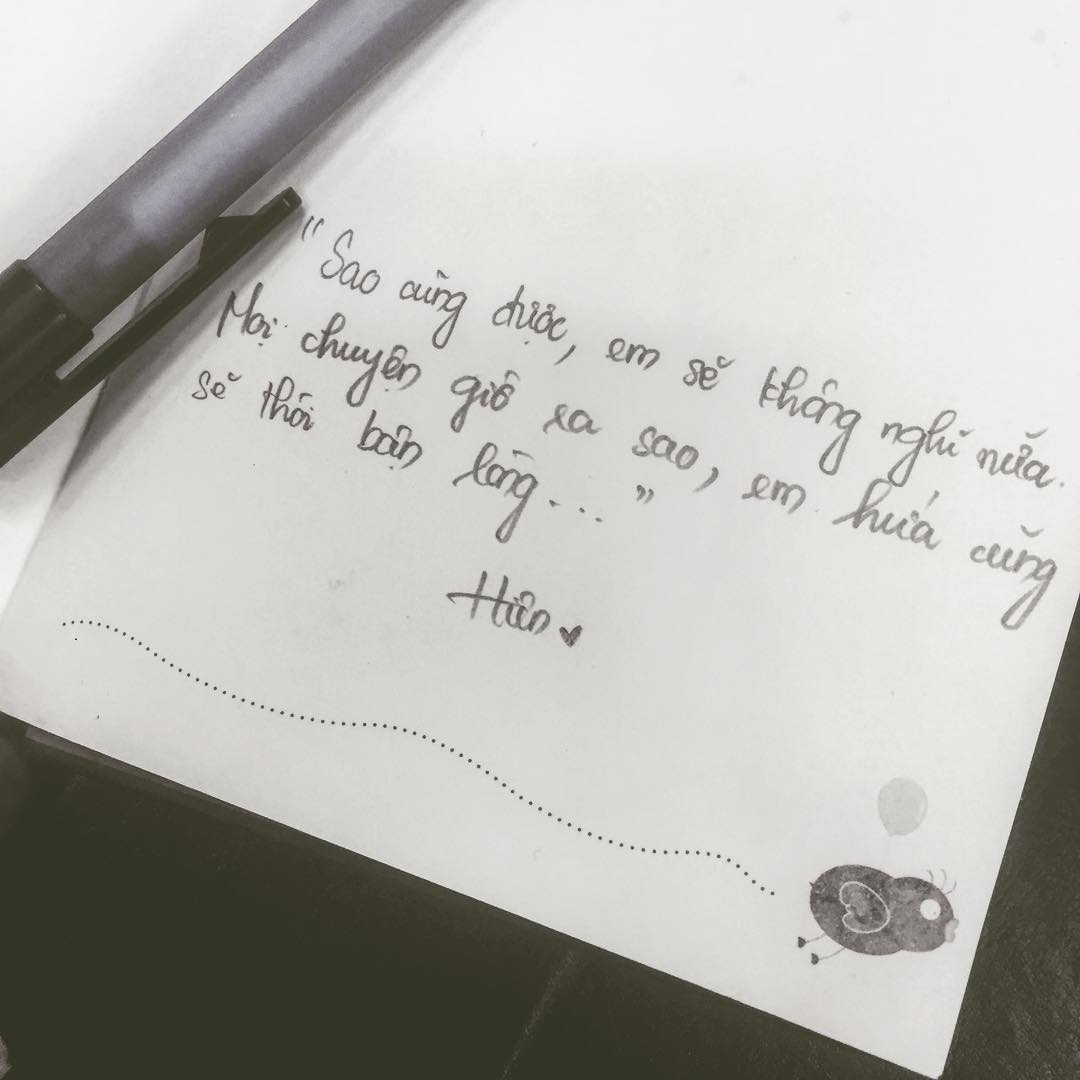 "Sao cũng được, em sẽ không nghĩ nữa.
Mọi chuyện giờ ra sao, em hứa cũng
sẽ thôi bận lòng... "
Hiên